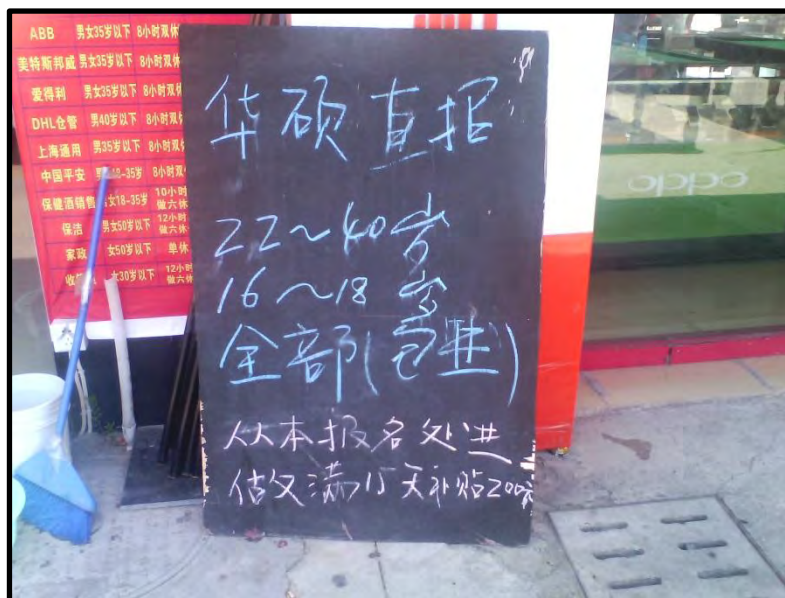 ABB 男女35岁以下 8小时双休
美特斯邦威 男女35岁以下 8小时双
爱得利 男女35岁以下 8小时双
DHL仓管 男40岁以下 8小时双休
上海通用 男35岁以下 8小时双
中国平安 18-35岁 8小时双
保健酒销售 女18-35岁 10小时 做六休
保洁 男女50岁以下 12小时 做六休
家政 女50岁以下 单休
收 女30岁以下 12小时 做六休
华硕直招
22~40岁
16~18岁
全部(包进)
从本报名处进
做满15天补贴200元
oppo